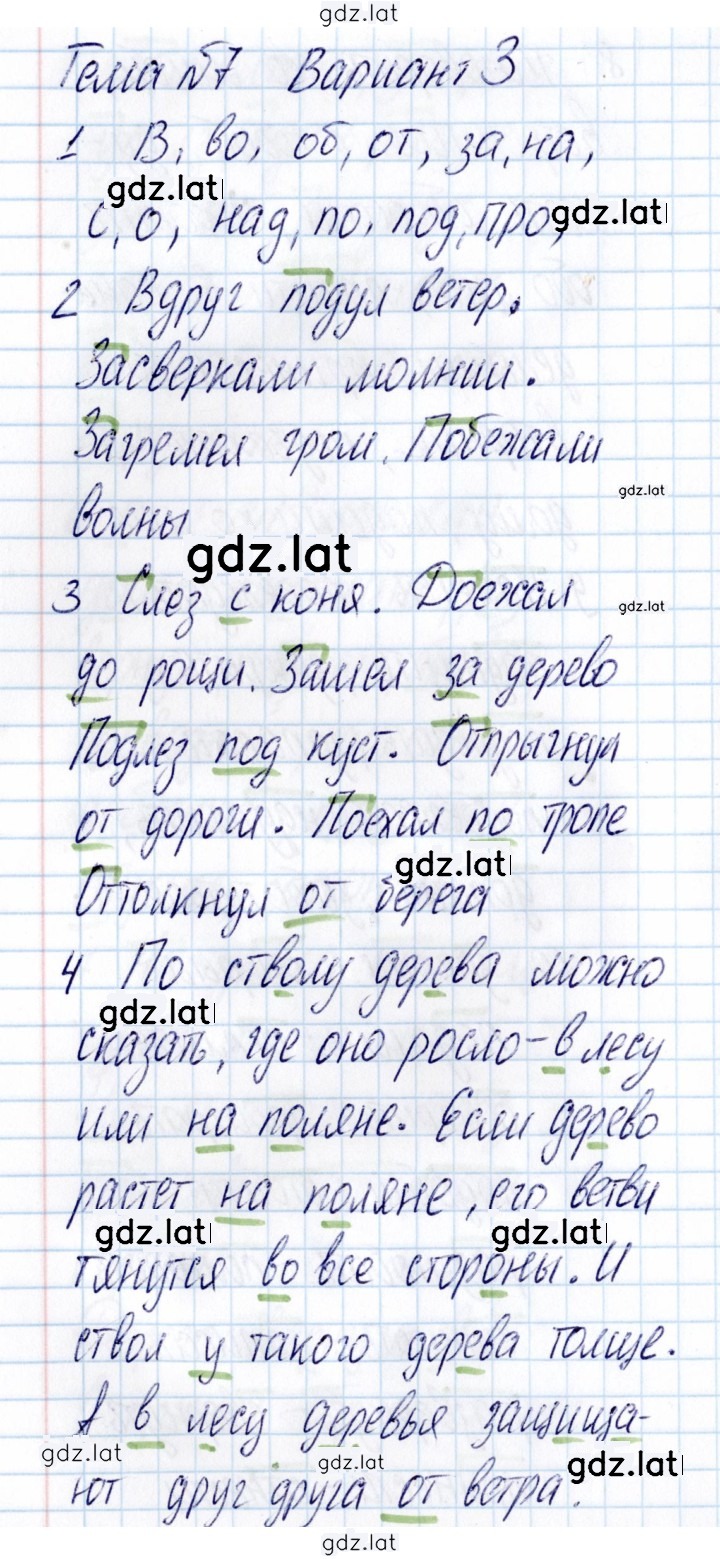 gdz.lat
Тема №7 Вариант 3
1 В, во, об, от, за, на,
gdz.lat gdz.lat
с, о, над, по, под, про,
2 Вдруг подул ветер.
Засверкали молнии.
Загремел гром. Побежали
gdz.lat
волны
gdz.lat
3 Слез с коня. Доехал
gdz.lat
до рощи. Зашел за дерево
Подлез под куст. Отпрыгнул
от дороги. Поехал по тропе
gdz.lat
Оттолкнул от берега
4 По стволу дерева можно
gdz.lat
сказать, где оно росло - в лесу
или на поляне. Если дерево
растет на поляне, его ветви
gdz.lat gdz.lat
тянутся во все стороны. И
ствол у такого дерева толще.
А в лесу деревья защища-
gdz.lat gdz.lat gdz.lat
ют друг друга от ветра.
gdz.lat